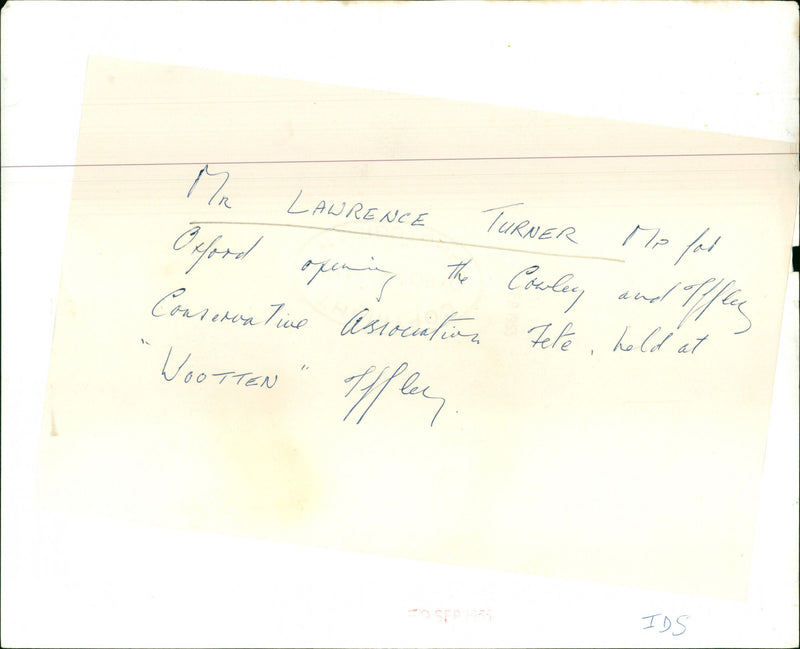 Mr LAWRENCE TURNER MP for
Oxford opening the Cowley and Iffley
Conservative Association Fete, held at
"WOOTTEN" Iffley.
SEP
IDS